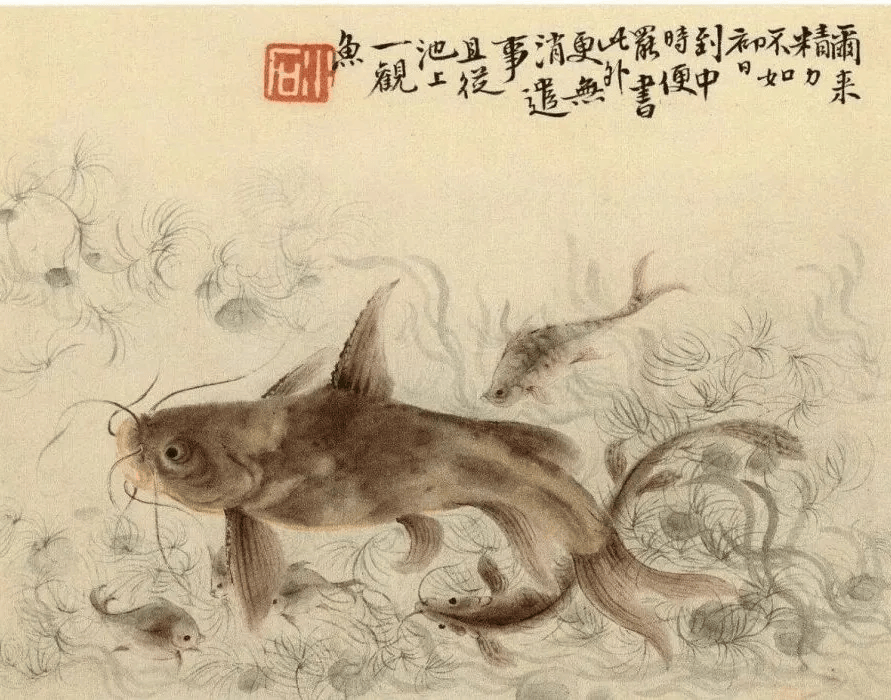 爾来
精力
不如
初日
到中
時便
罷書
此外
更無
消遣
事
且從
池上
一觀
魚